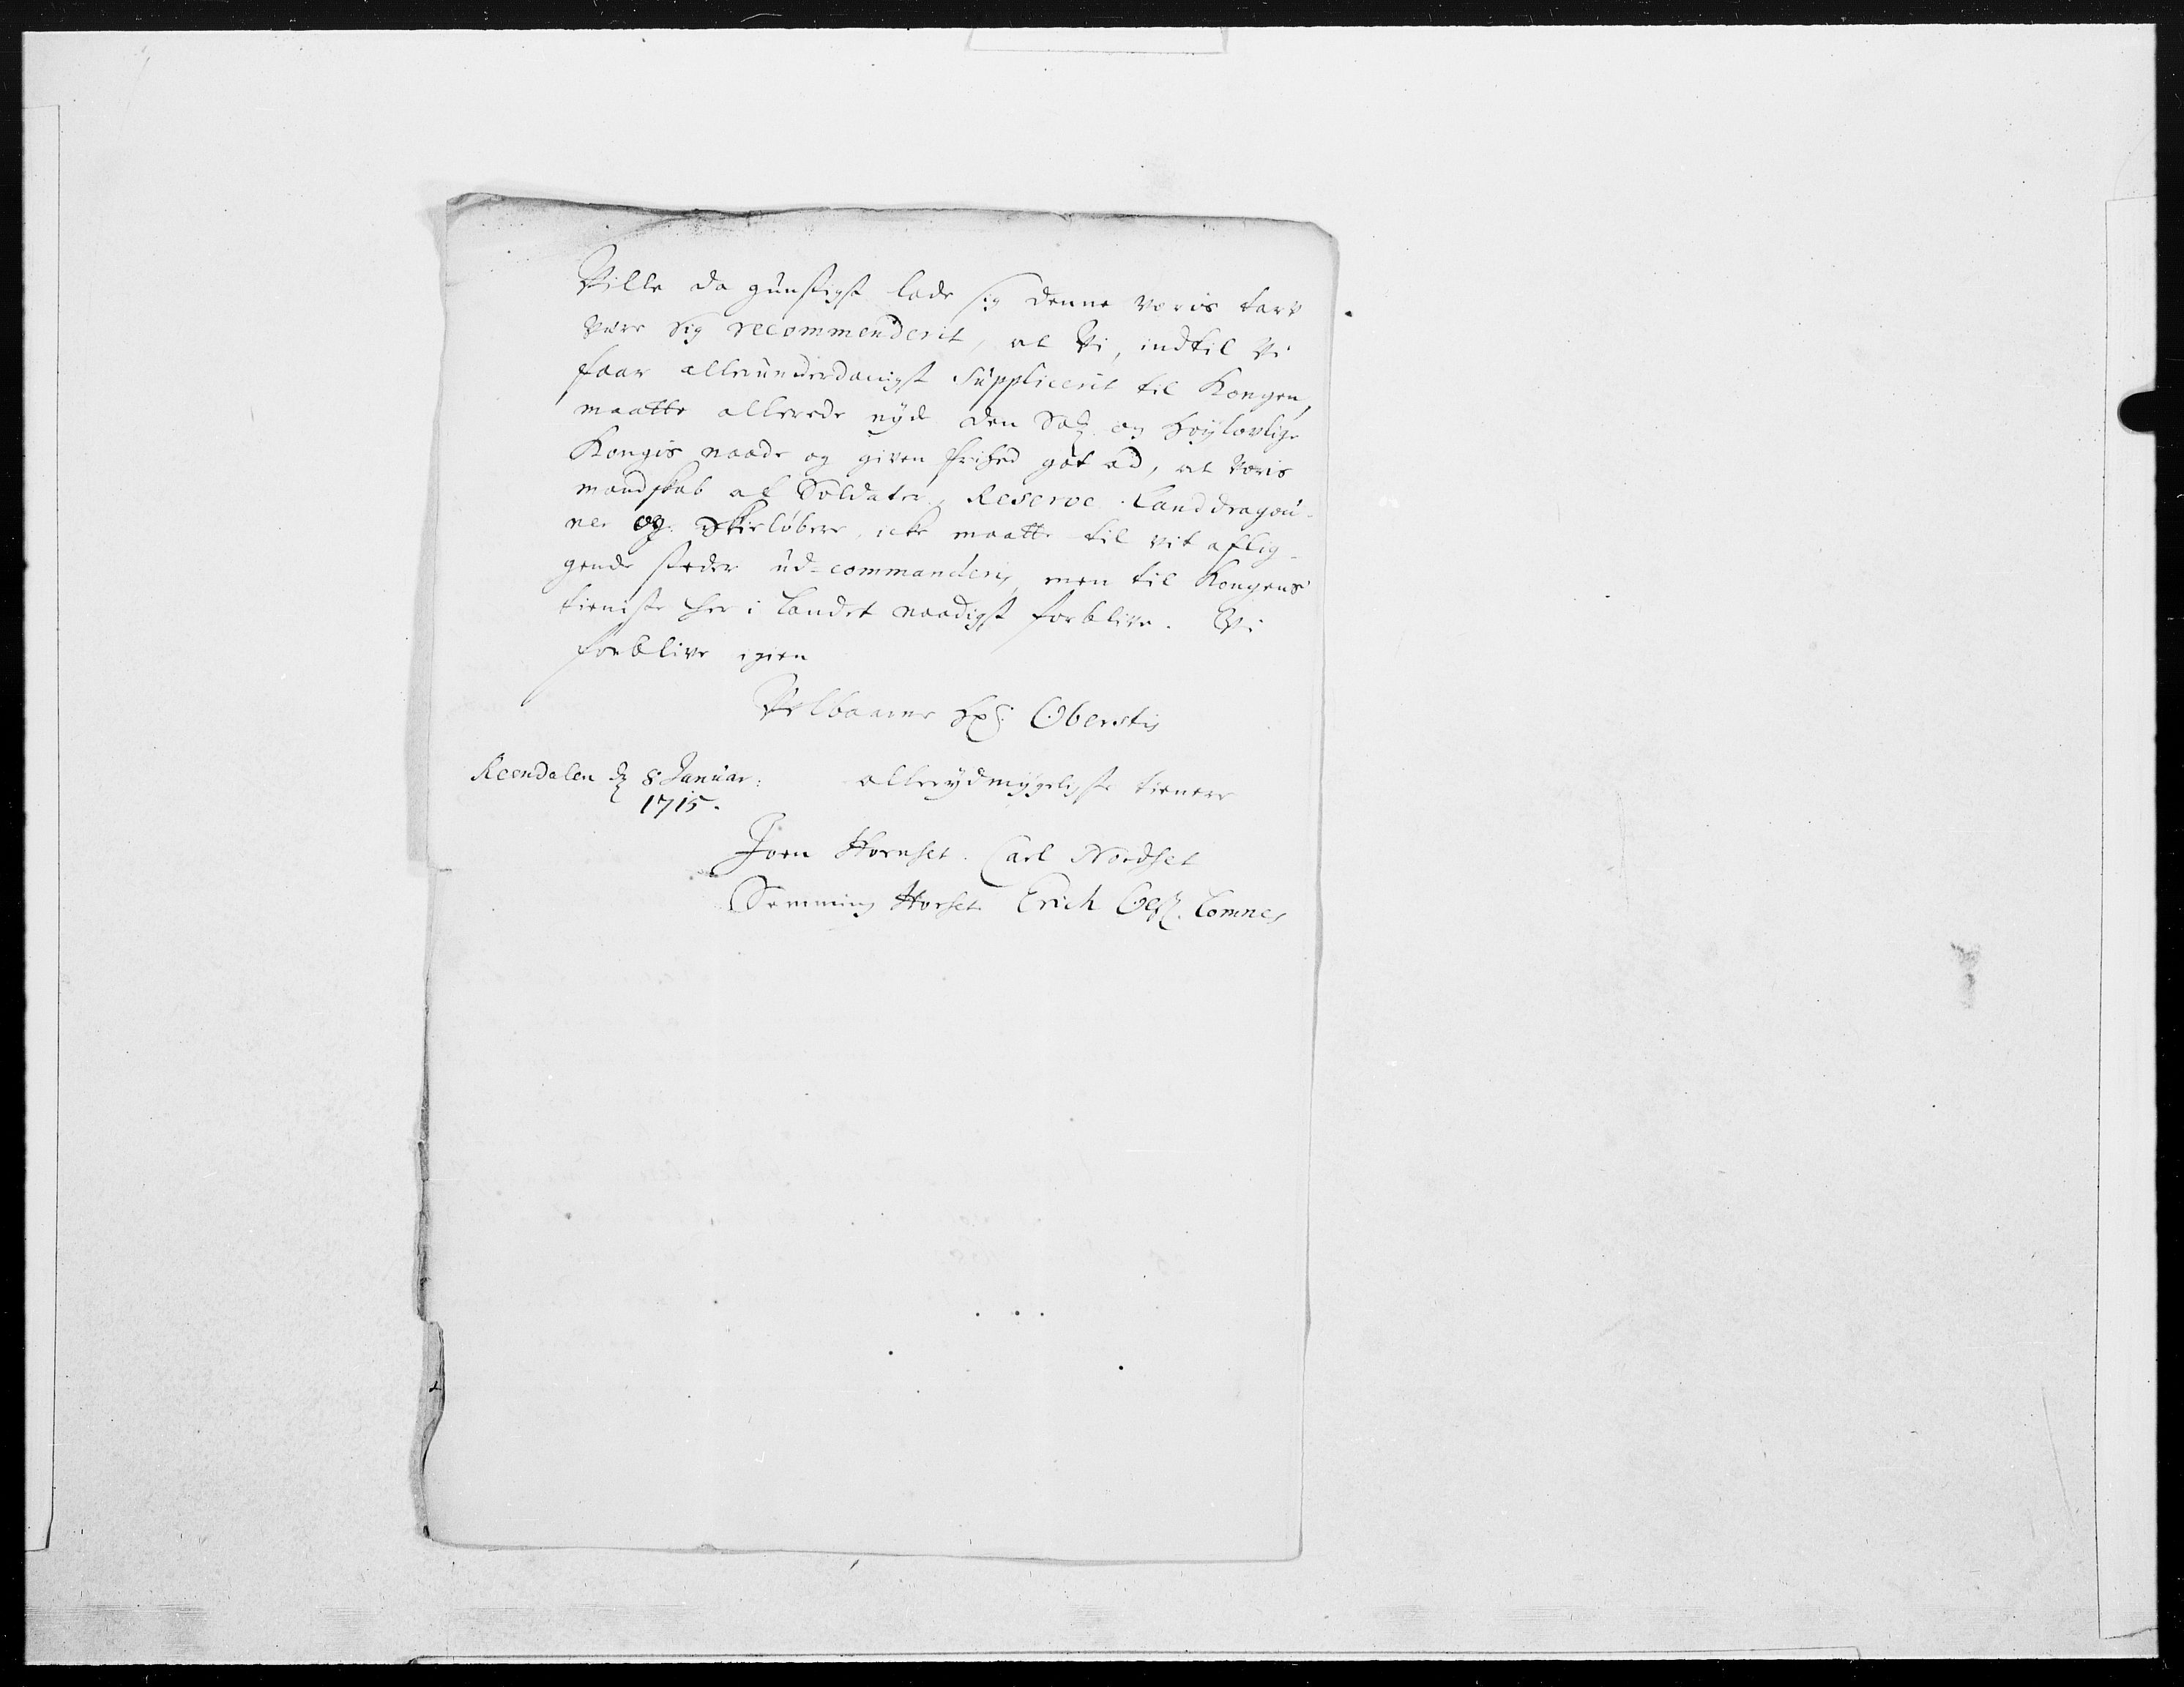 Ville da gunstigst lade sig denne voris tarv
være sig recommenderit, at Vi, indtil Vi
faar allerunderdanigst Suppliceret til Kongen,
maatte allerede nyde den Salig og høylovlige
Kongis naade og given frihed got ad, at voris
mandskab af Soldater, Reserve Landdragou-
ner og Skieløbere, icke maatte til vit aflig-
gende steder ud-commanderis, men til Kongens
tieniste her i landet naadigst forblive. Vi
forblive igien
Velbaarne Hr: Oberstis
Reendalen d 8 Januar: allerydmygeligste tienere
1715.
Joen Hornset. Carl Nordset
Semming Horset. Erich Lomnes